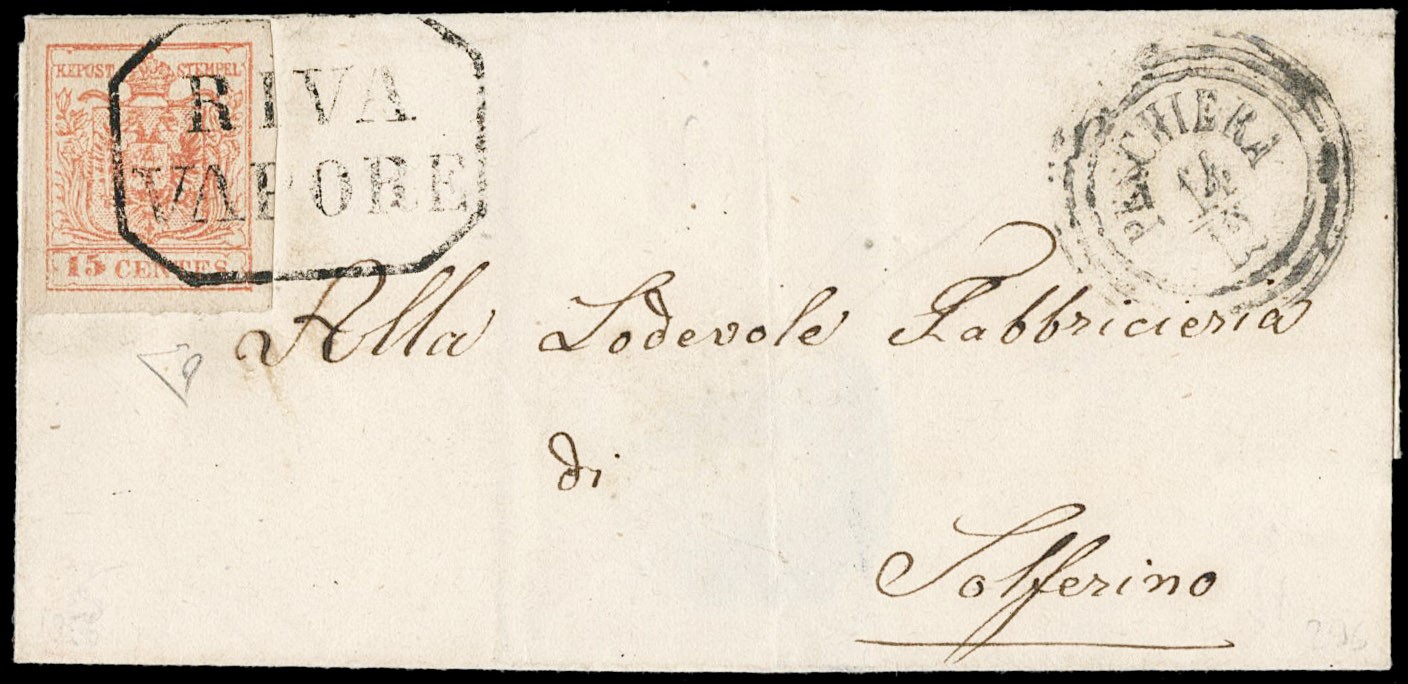 KKPOST STEMPEL
15 CENTES
RIVA
VAPORE
PESCHIERA
14
12
Alla Lodevole Fabbricieria
di
Solferino